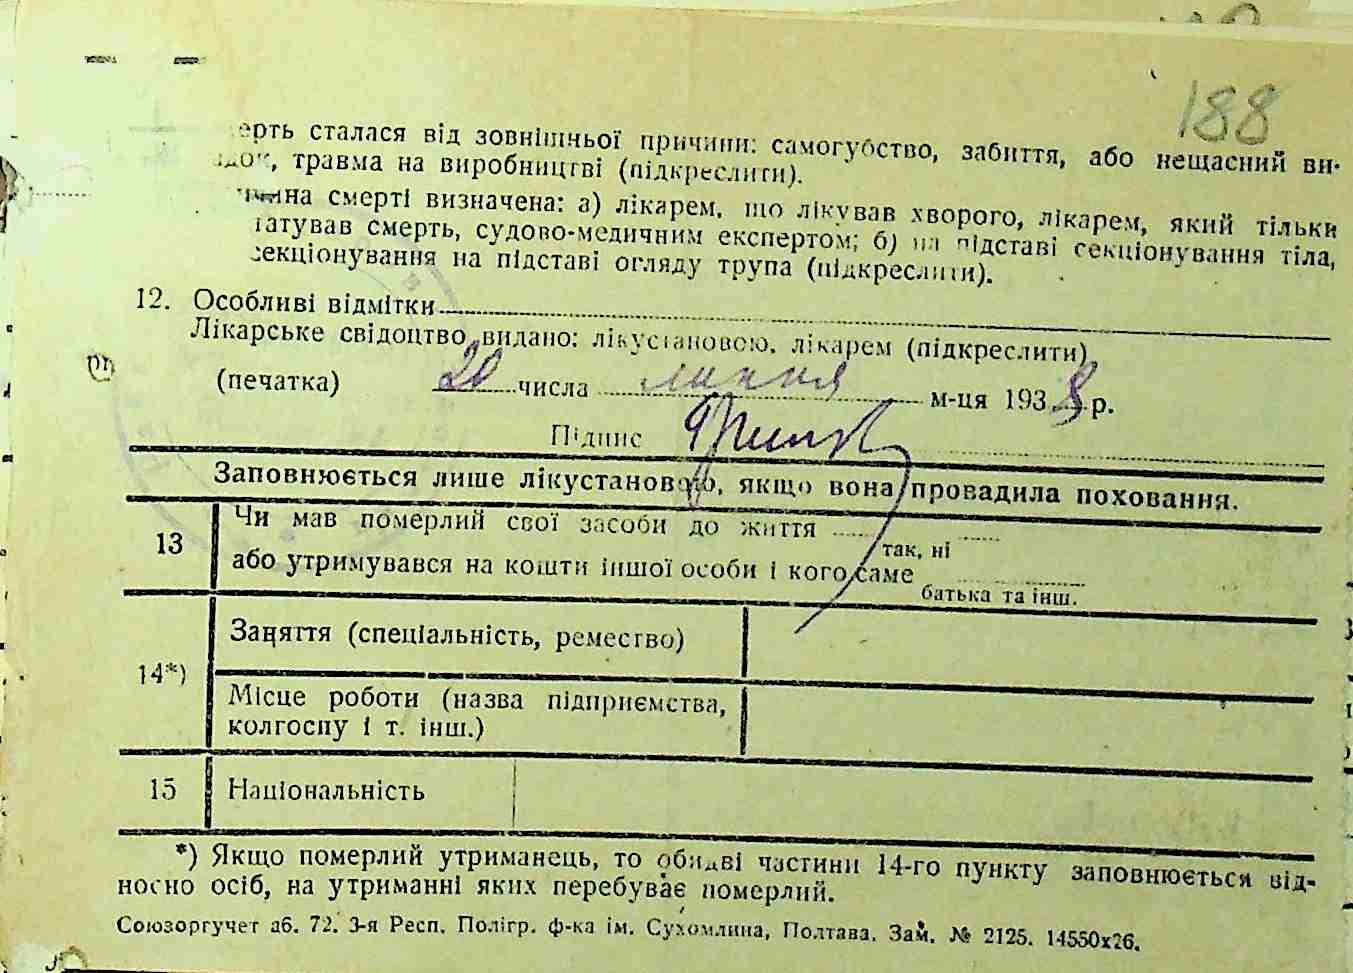 188
ерть сталася від зовнішньої причини: самогубство, забиття, або нещасний ви-
док, травма на виробництві (підкреслити).
чина смерті визначена: а) лікарем, що лікував хворого, лікарем, який тільки
татував смерть, судово-медичним експертом; б) на підставі секціонування тіла,
секціонування на підставі огляду трупа (підкреслити).
12. Особливі відмітки
Лікарське свідоцтво видано: лікустановою, лікарем (підкреслити)
(печатка) 20 числа липня м-ця 1938 р.
Підпис
Заповнюється лише лікустановою, якщо вона провадила поховання.
13 Чи мав померлий свої засоби до життя
так, ні
або утримувався на кошти іншої особи і кого саме
батька та інш.
14*) Заняття (спеціальність, ремество)
Місце роботи (назва підприємства,
колгоспу і т. інш.)
15 Національність
*) Якщо померлий утриманець, то обидві частини 14-го пункту заповнюється від-
носно осіб, на утриманні яких перебуває померлий.
Союзоргучет аб. 72. 3-я Респ. Полігр. ф-ка ім. Сухомлина, Полтава. Зам. № 2125. 14550х26.